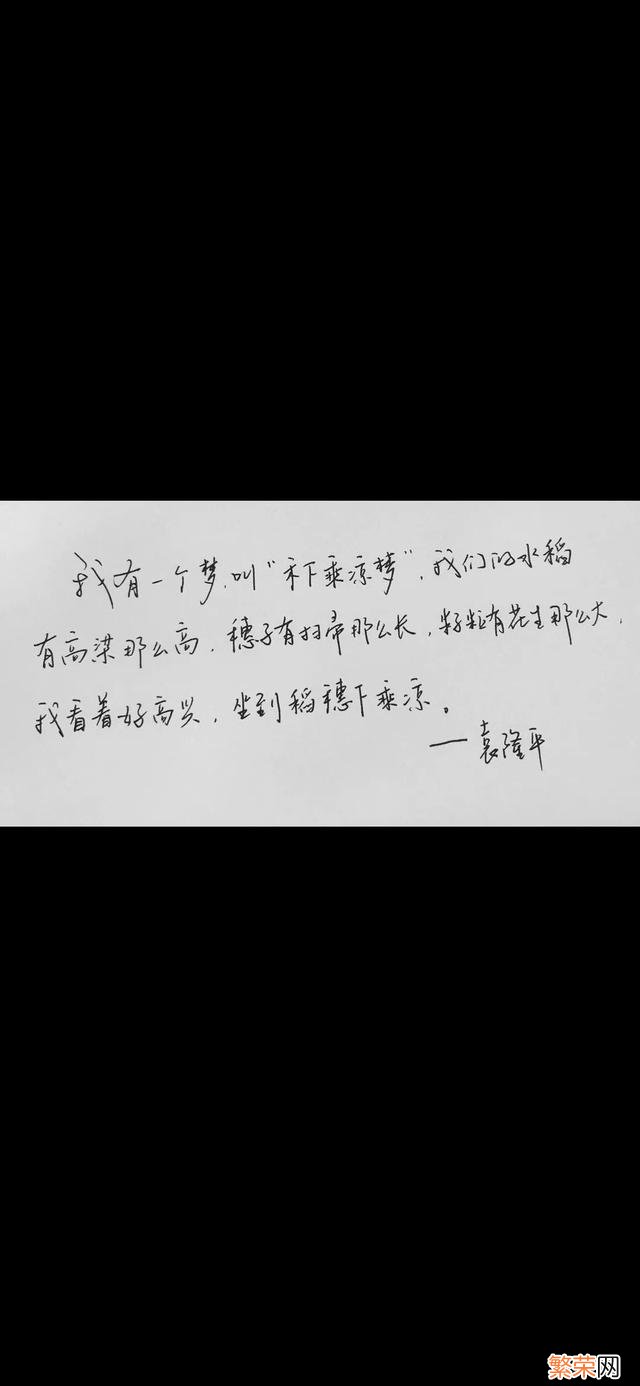 我有一个梦，叫“禾下乘凉梦”，我们的水稻
有高梁那么高，穗子有扫帚那么长，籽粒有花生那么大，
我看着好高兴，坐到稻穗下乘凉。
——袁隆平
繁荣网